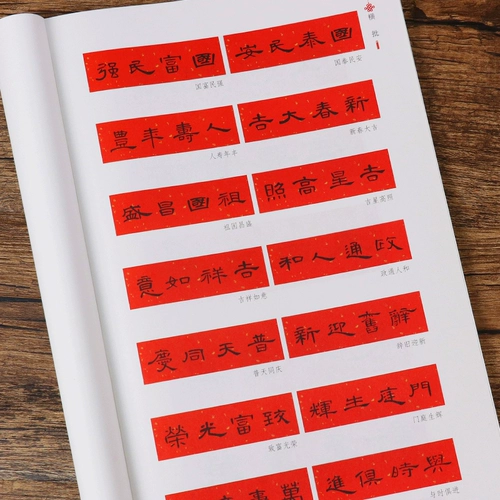 横批
國泰民安
国泰民安
國富民强
国富民强
新春大吉
新春大吉
人壽年豐
人寿年丰
吉星高照
吉星高照
祖國昌盛
祖国昌盛
政通人和
政通人和
吉祥如意
吉祥如意
辭舊迎新
辞旧迎新
普天同慶
普天同庆
門庭生輝
门庭生辉
致富光榮
致富光荣
與時俱進
与时俱进
萬事